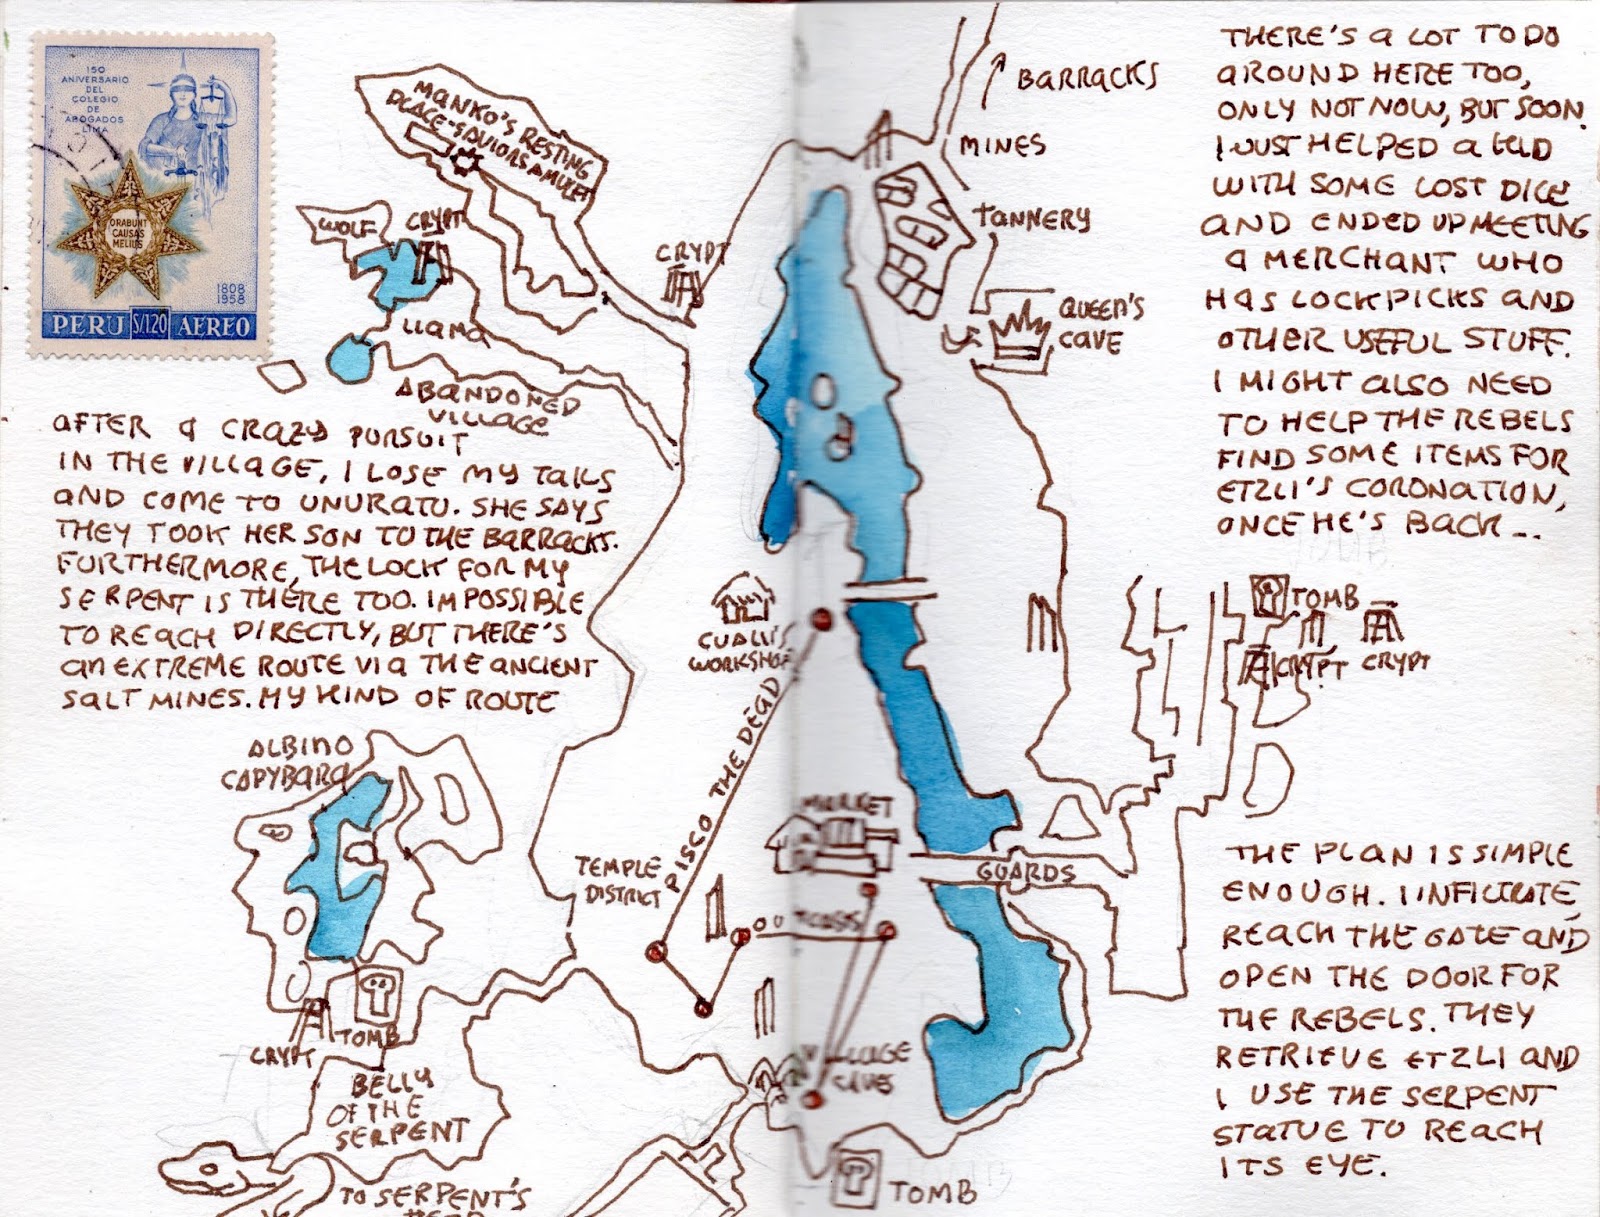 150
ANIVERSARIO
DEL
COLEGIO
DE
ABOGADOS
LIMA
ORABUNT
CAUSAS
MELIUS
1808
1958
PERU S/1.20 AEREO
MANKO'S RESTING
PLACE-SAVIORS AMULET
WOLF
CRYPT
CRYPT
LLAMA
ABANDONED
VILLAGE
BARRACKS
MINES
TANNERY
QUEEN'S
CAVE
AFTER A CRAZY PURSUIT
IN THE VILLAGE, I LOSE MY TAILS
AND COME TO UNURATU. SHE SAYS
THEY TOOK HER SON TO THE BARRACKS.
FURTHERMORE, THE LOCK FOR MY
SERPENT IS THERE TOO. IMPOSSIBLE
TO REACH DIRECTLY, BUT THERE'S
AN EXTREME ROUTE VIA THE ANCIENT
SALT MINES. MY KIND OF ROUTE
THERE'S A LOT TO DO
AROUND HERE TOO,
ONLY NOT NOW, BUT SOON.
I JUST HELPED A KID
WITH SOME LOST DICE
AND ENDED UP MEETING
A MERCHANT WHO
HAS LOCKPICKS AND
OTHER USEFUL STUFF.
I MIGHT ALSO NEED
TO HELP THE REBELS
FIND SOME ITEMS FOR
ETZLI'S CORONATION,
ONCE HE'S BACK...
CUALLI'S
WORKSHOP
PISCO THE DEAD
TOMB
CRYPT
CRYPT
ALBINO
CAPYBARA
MARKET
TEMPLE
DISTRICT
GUARDS
OUTCASTS
TOMB
CRYPT
VILLAGE
CAVES
BELLY
OF THE
SERPENT
TO SERPENT'S
HEAD
TOMB
THE PLAN IS SIMPLE
ENOUGH. I INFILTRATE,
REACH THE GATE AND
OPEN THE DOOR FOR
THE REBELS. THEY
RETRIEVE ETZLI AND
I USE THE SERPENT
STATUE TO REACH
ITS EYE.